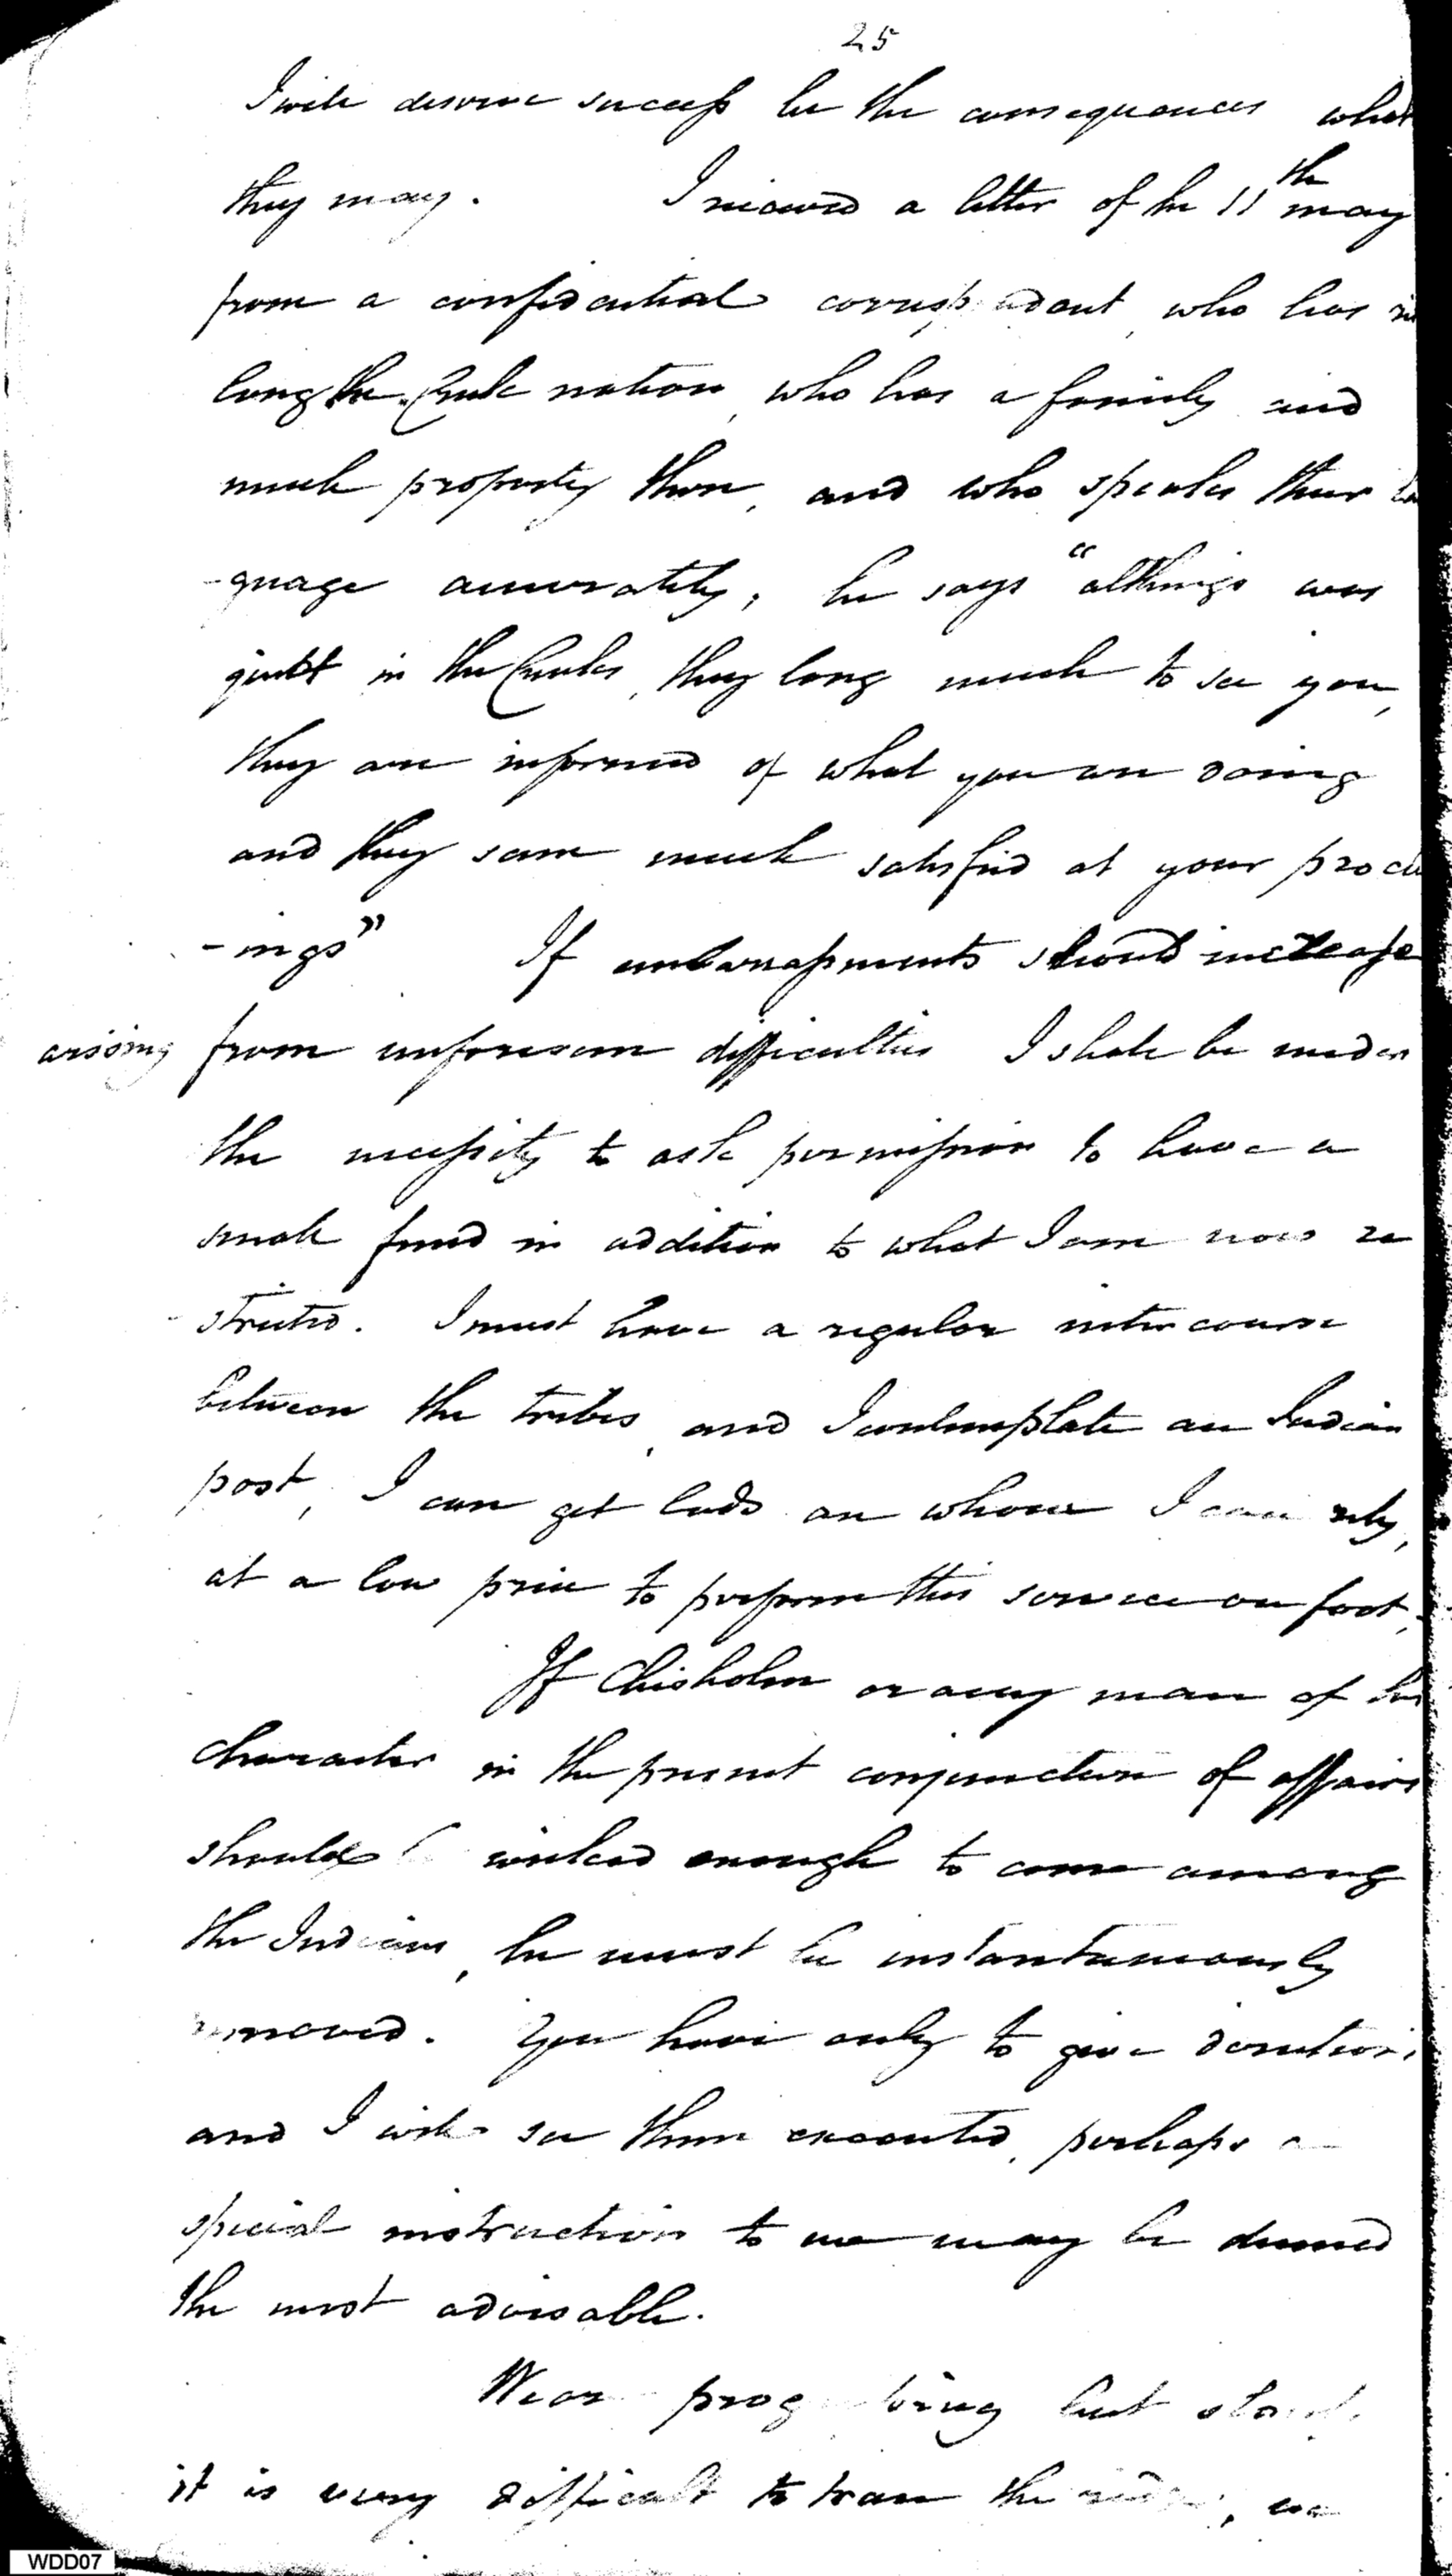 25
I will deserve success be the consequences what
they may. I received a letter of the 11th may
from a confidential correspondent, who has
long the Creek nation, who has a family and
much property there, and who speaks their
-guage accurately, he says "allthings was
quiet in the Creeks, they long much to see you,
they are informed of what you are doing
and they seem much satisfied at your proce
-ings" If embarrassments should increase
arising from unforeseen difficulties I shall be under
the necessity to ask permission to have a
small fund in addition to what I am now re
-stricted. I must have a regular intercourse
between the tribes, and I contemplate an Indian
post, I can get lads on whom I can rely,
at a low price to perform this service on foot.
If Chisholm or any man of his
character in the present conjuncture of affairs
should wicked enough to come among
the Indians, he must be instantaneously
removed. You have only to give directions
and I will see them executed, perhaps a
special instruction to me may be deemed
the most advisable.
We are prog but
it is very difficult to trace the we
WDD07